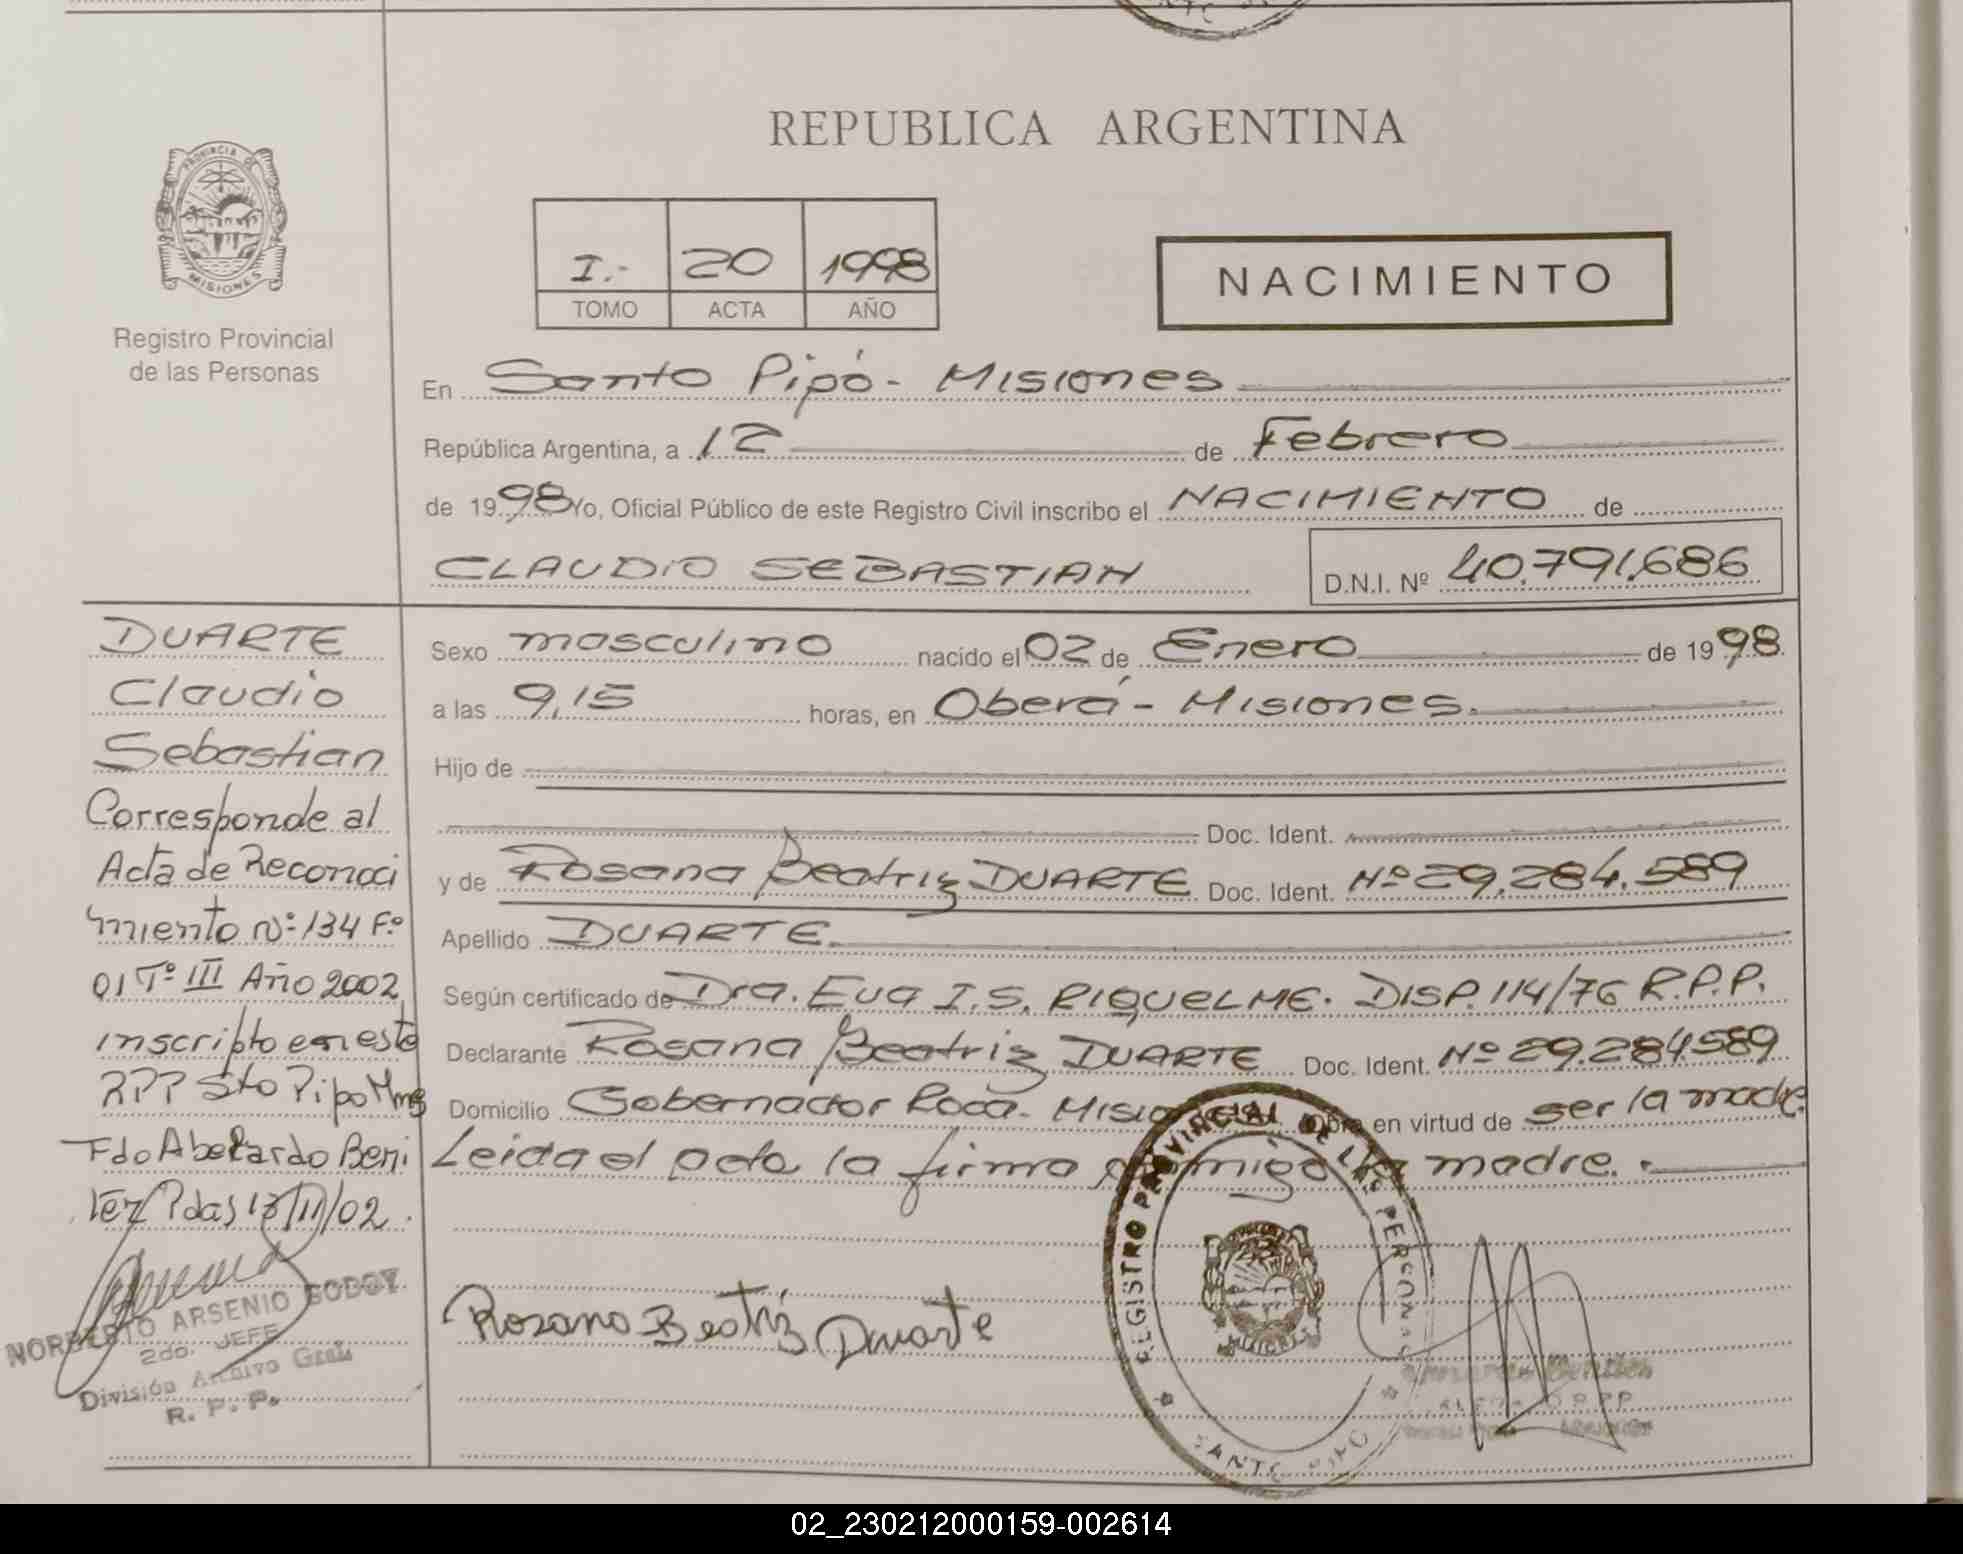 REPUBLICA ARGENTINA
PROVINCIA DE MISIONES
Registro Provincial
de las Personas
I.- 20 1998
TOMO ACTA AÑO
NACIMIENTO
En Santo Pipó - Misiones
República Argentina, a 12 de Febrero
de 1998 Yo, Oficial Público de este Registro Civil inscribo el NACIMIENTO de
CLAUDIO SEBASTIAN D.N.I. Nº 40.791.686
Sexo masculino nacido el 02 de Enero de 1998
a las 9,15 horas, en Oberá - Misiones.
Hijo de
Doc. Ident.
y de Rosana Beatriz DUARTE Doc. Ident. Nº 29.284.589
Apellido DUARTE.
Según certificado de Dra. Eva I.S. RIQUELME. DISP. 114/76 R.P.P.
Declarante Rosana Beatriz DUARTE Doc. Ident. Nº 29.284.589
Domicilio Gobernador Roca - Misiones Obra en virtud de ser la madre
Leida el acta la firma conmigo la madre.
Rosana Beatriz Duarte
REGISTRO PROVINCIAL DE LAS PERSONAS
SANTO PIPO
DUARTE
Claudio
Sebastian
Corresponde al
Acta de Reconoci
miento Nº 134 Fº
01 Tº III Año 2002
inscripto en este
RPP Sto Pipo Mnes
Fdo Abelardo Beni
tez Pdas 13/11/02.
NORBERTO ARSENIO GODOY
2do. JEFE
División Archivo Gral.
R. P. P.
02_230212000159-002614